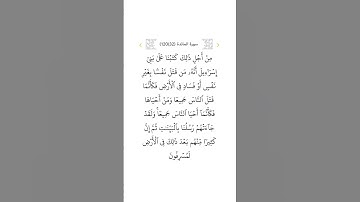 سورة المائدة (32\120)
مِنْ أَجْلِ ذَٰلِكَ كَتَبْنَا عَلَىٰ بَنِي
إِسْرَٰٓءِيلَ أَنَّهُۥ مَن قَتَلَ نَفْسًا بِغَيْرِ
نَفْسٍ أَوْ فَسَادٍ فِي ٱلْأَرْضِ فَكَأَنَّمَا
قَتَلَ ٱلنَّاسَ جَمِيعًا وَمَنْ أَحْيَاهَا
فَكَأَنَّمَآ أَحْيَا ٱلنَّاسَ جَمِيعًا وَلَقَدْ
جَآءَتْهُمْ رُسُلُنَا بِٱلْبَيِّنَٰتِ ثُمَّ إِنَّ
كَثِيرًا مِّنْهُم بَعْدَ ذَٰلِكَ فِي ٱلْأَرْضِ
لَمُسْرِفُونَ